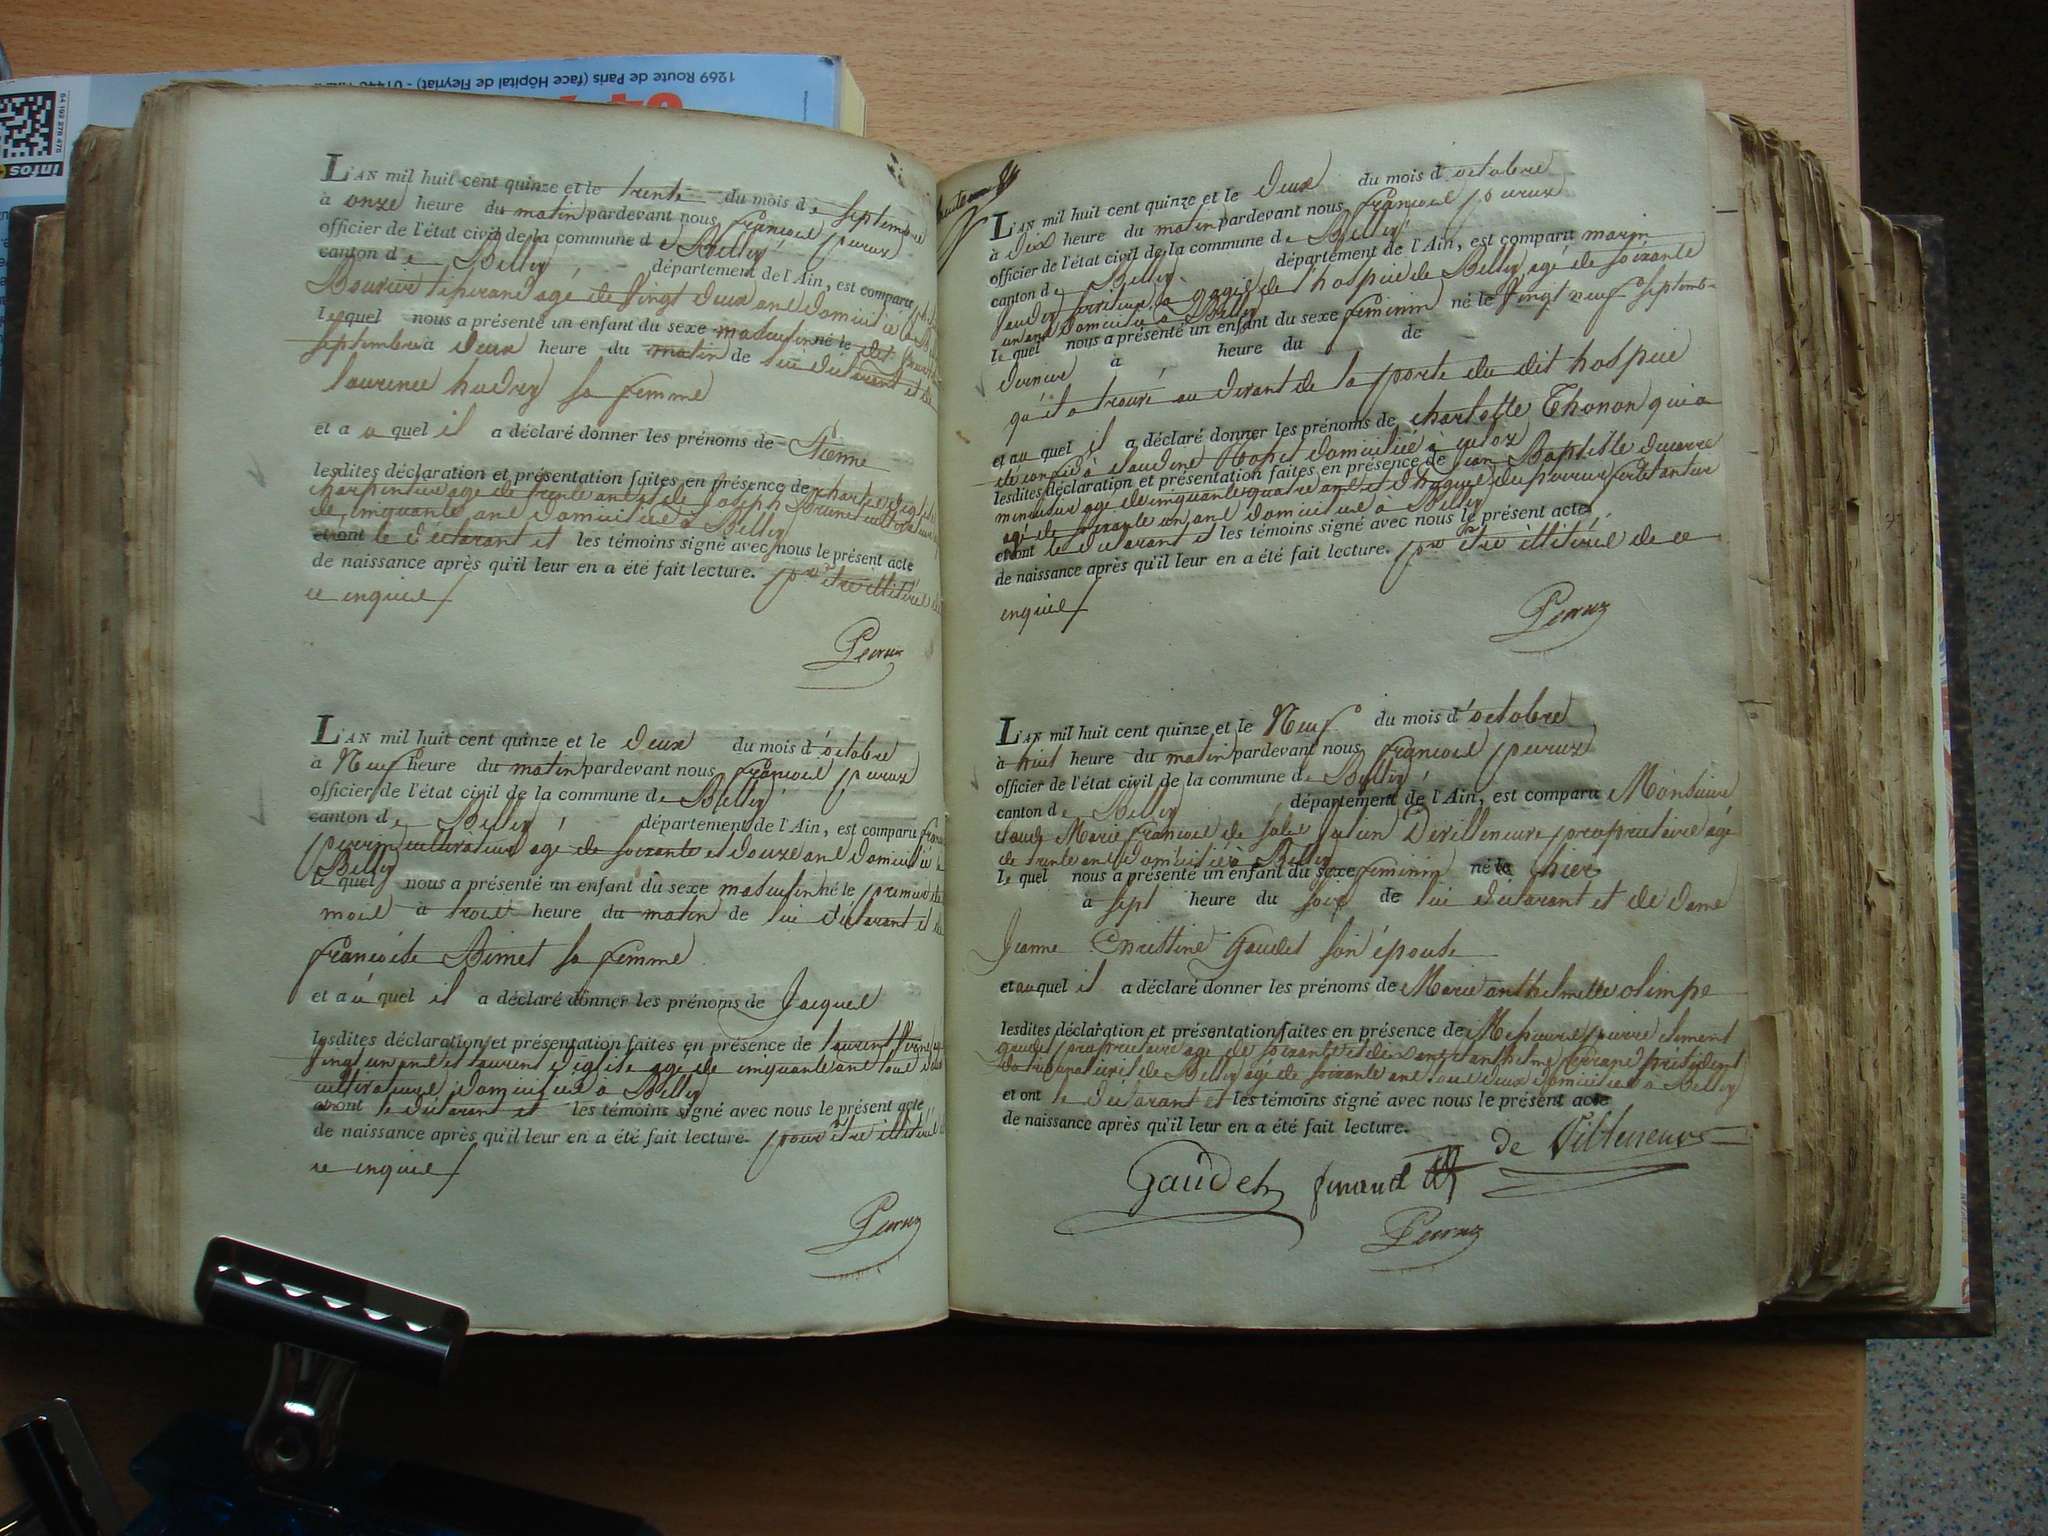 1269 Route de Paris (face Hôpital de Fleyriat) - 01440
64 192 278 475
Infos
L'AN mil huit cent quinze et le trente du mois de septembre
à onze heure du matin pardevant nous françois peroux
officier de l'état civil de la commune de Belley
canton de Belley département de l'Ain, est comparu
agé de vingt deux ans domicilié
lequel nous a présenté un enfant du sexe masculin né le
septembre à deux heure du matin de lui déclarant et de
laurence hudry sa femme
et a u quel il a déclaré donner les prénoms de Etienne
lesdites déclaration et présentation faites en présence de charles
charpentier agé de trente ans et de Joseph Brunet cultivateur
de cinquante ans domiciliés à Belley
et ont le déclarant et les témoins signé avec nous le présent acte
de naissance après qu'il leur en a été fait lecture. pour être illitérés de
ce enquis
L'AN mil huit cent quinze et le deux du mois d'octobre
à Neuf heure du matin pardevant nous françois peroux
officier de l'état civil de la commune de Belley
canton de Belley département de l'Ain, est comparu
cultivateur agé de soixante et douze ans domicilié à
Belley
le quel nous a présenté un enfant du sexe masculin né le premier du
mois à trois heure du matin de lui déclarant et de
françoise Bimet sa femme
et a u quel il a déclaré donner les prénoms de Jacques
lesdites déclaration et présentation faites en présence de laurent
vingt un ans et laurent agé de cinquante ans tous deux
cultivateurs domiciliés à Belley
et ont le déclarant et les témoins signé avec nous le présent acte
de naissance après qu'il leur en a été fait lecture. pour être illitérés de
ce enquis
L'AN mil huit cent quinze et le deux du mois d'octobre
à dix heure du matin pardevant nous françois peroux
officier de l'état civil de la commune de Belley
canton de Belley département de l'Ain, est comparu marin
à gages de l'hospice de Belley agé de soixante
un ans domicilié à Belley
le quel nous a présenté un enfant du sexe feminin né le vingt neuf septembre
dernier à heure du de
qu'il a trouvé au devant de la porte du dit hospice
et au quel il a déclaré donner les prénoms de charlotte Thonon qui a
été confié à domiciliée à culoz
lesdites déclaration et présentation faites en présence de Jean Baptiste ducarre
menuisier agé de cinquante quatre ans et d'hugues
agé de soixante un ans domiciliés à Belley
et ont le déclarant et les témoins signé avec nous le présent acte
de naissance après qu'il leur en a été fait lecture. pour être illitérés de ce
enquis
L'AN mil huit cent quinze et le Neuf du mois d'octobre
à huit heure du matin pardevant nous françois peroux
officier de l'état civil de la commune de Belley
canton de Belley département de l'Ain, est comparu Monsieur
claude Marie françois de sales Julien Devilleneuve propriétaire agé
de trente ans domicilié à Belley
le quel nous a présenté un enfant du sexe feminin né hier
à sept heure du soir de lui déclarant et de dame
Jeanne Christine Gaudet son épouse
et au quel il a déclaré donner les prénoms de Marie anthelmette olimpe
lesdites déclaration et présentation faites en présence de Messieurs pierre clement
gaudet propriétaire agé de soixante et dix ans et anthelme ferrand président
de Belley agé de soixante ans tous deux domiciliés à Belley
et ont le déclarant et les témoins signé avec nous le présent acte
de naissance après qu'il leur en a été fait lecture.
de Villeneuve
Gaudet